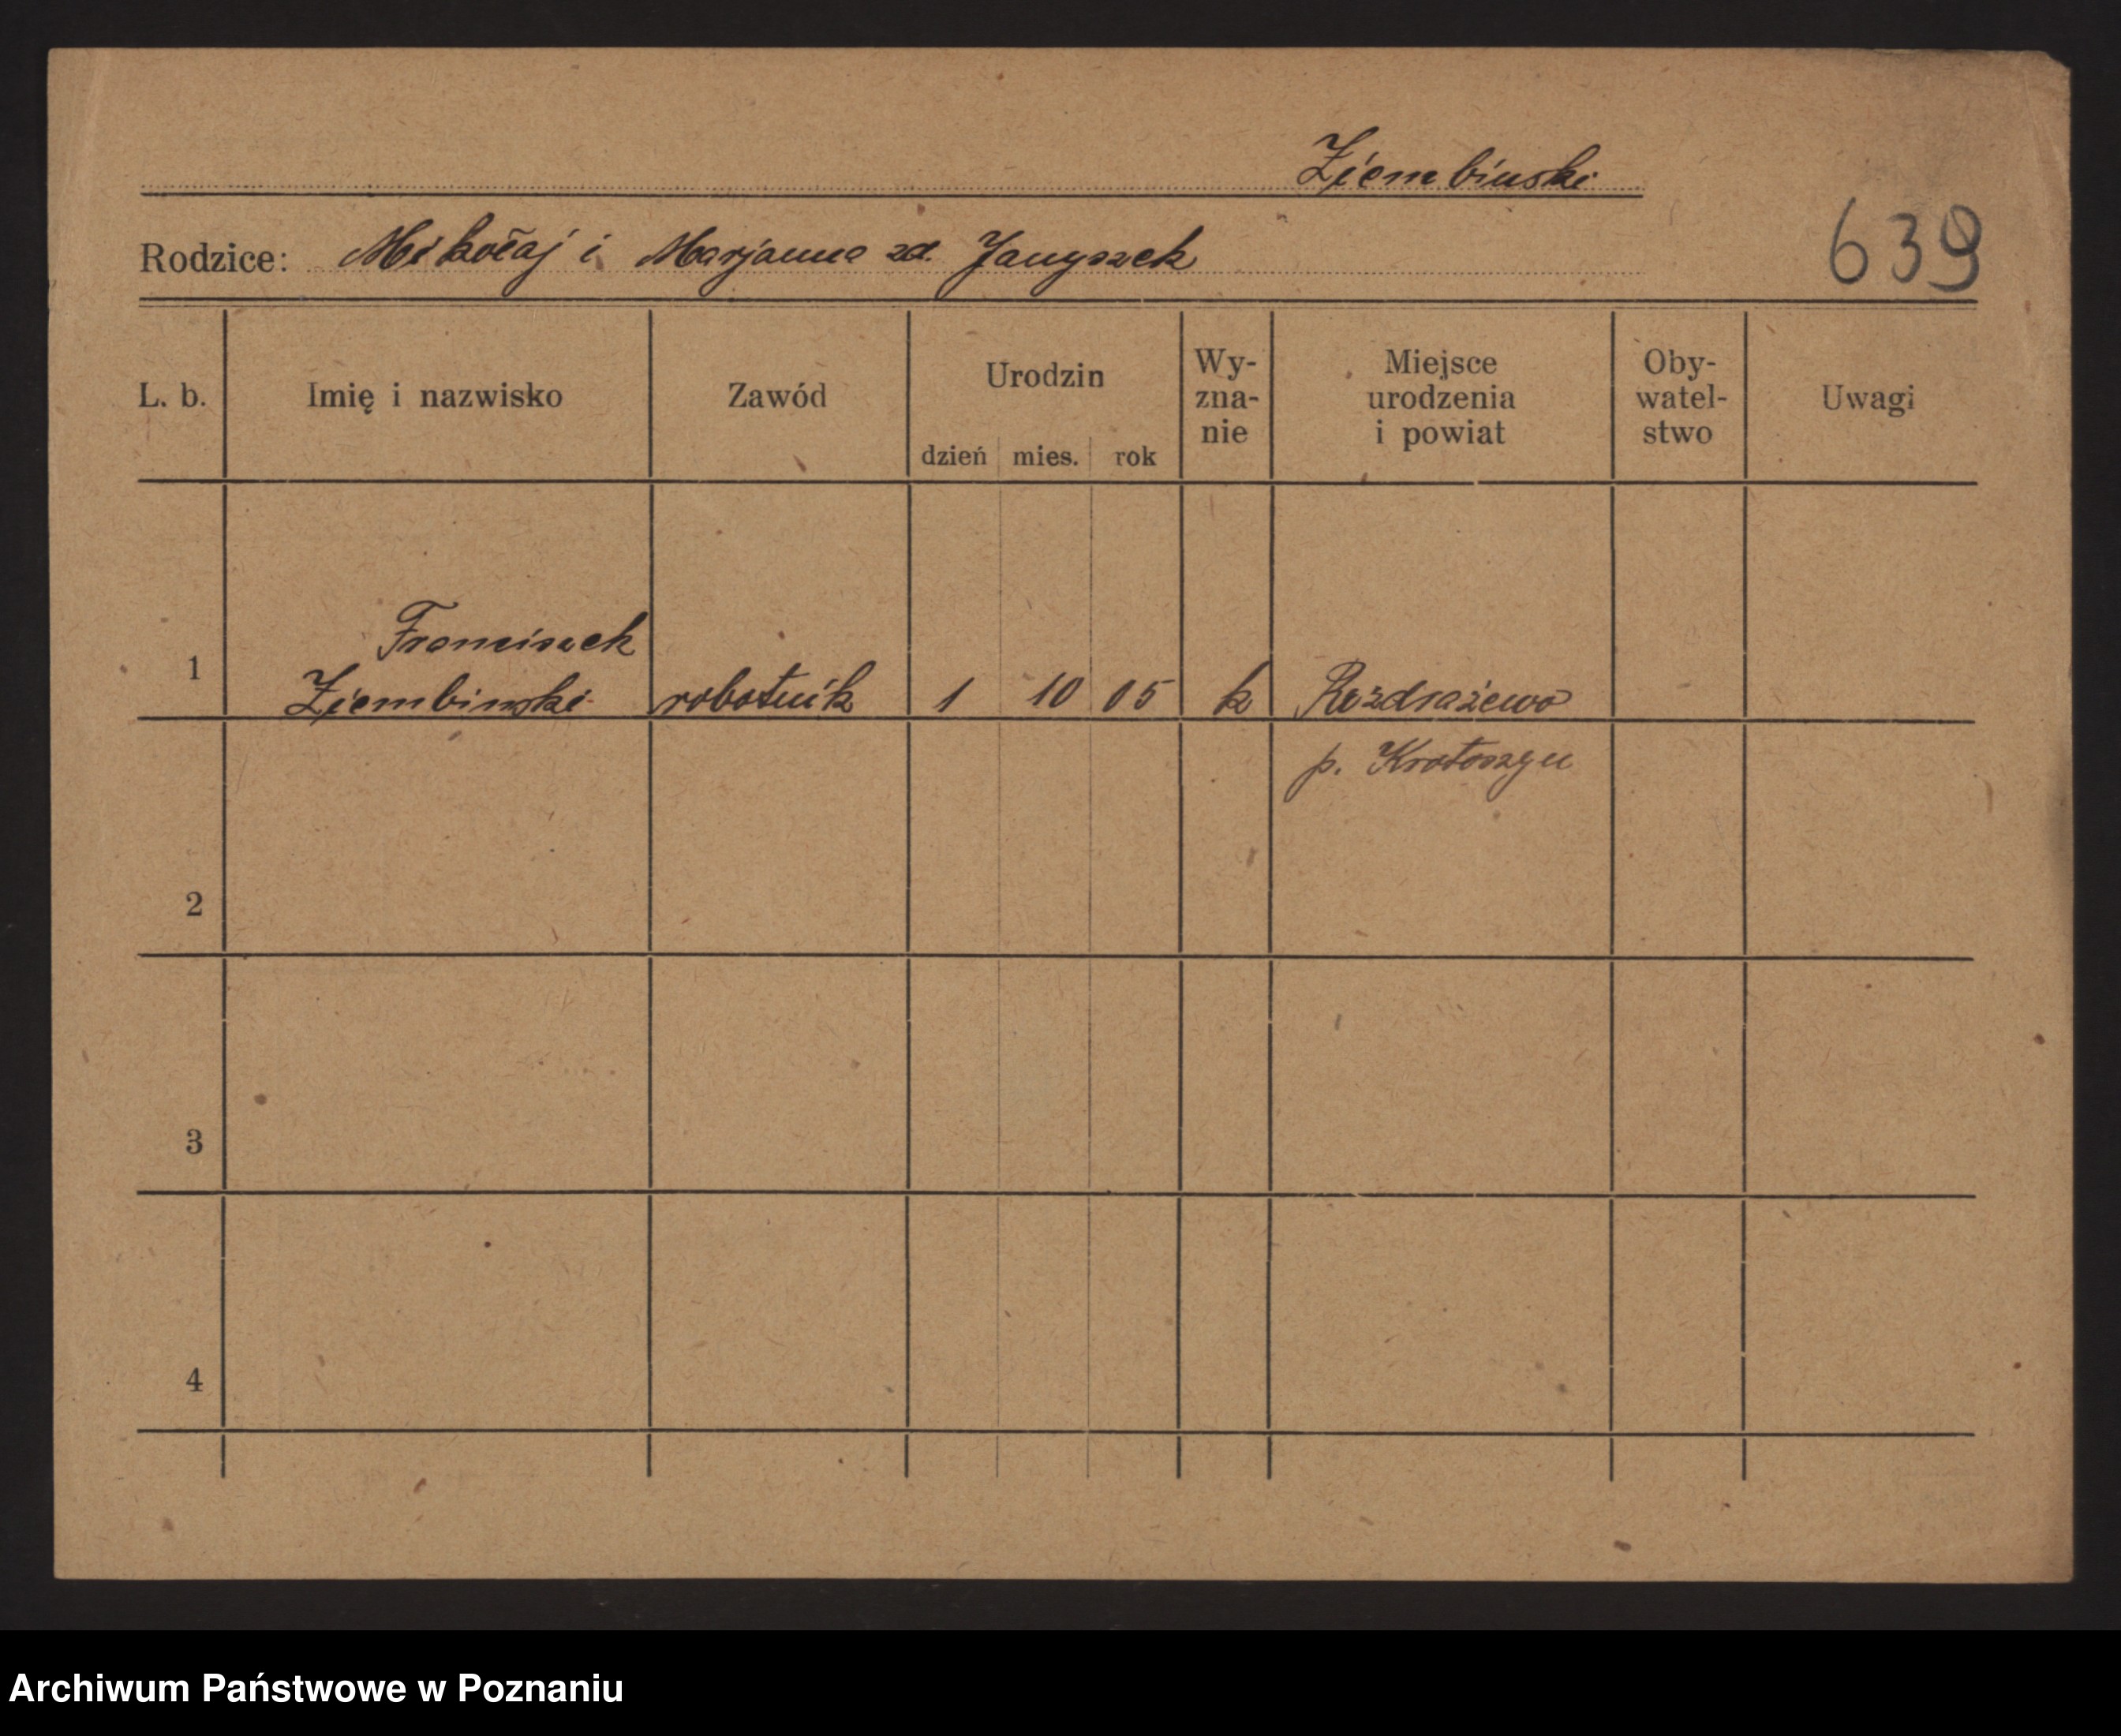 Ziembinski
Rodzice: Mikołaj i Marjanna zd. Janyszek
639
L. b. Imię i nazwisko Zawód Urodzin dzień mies. rok Wy-zna-nie Miejsce urodzenia i powiat Oby-watel-stwo Uwagi
Franciszek
1 Ziembinski robotnik 1 10 05 k Rozdrażewo
p. Krotoszyn
2
3
4
Archiwum Państwowe w Poznaniu